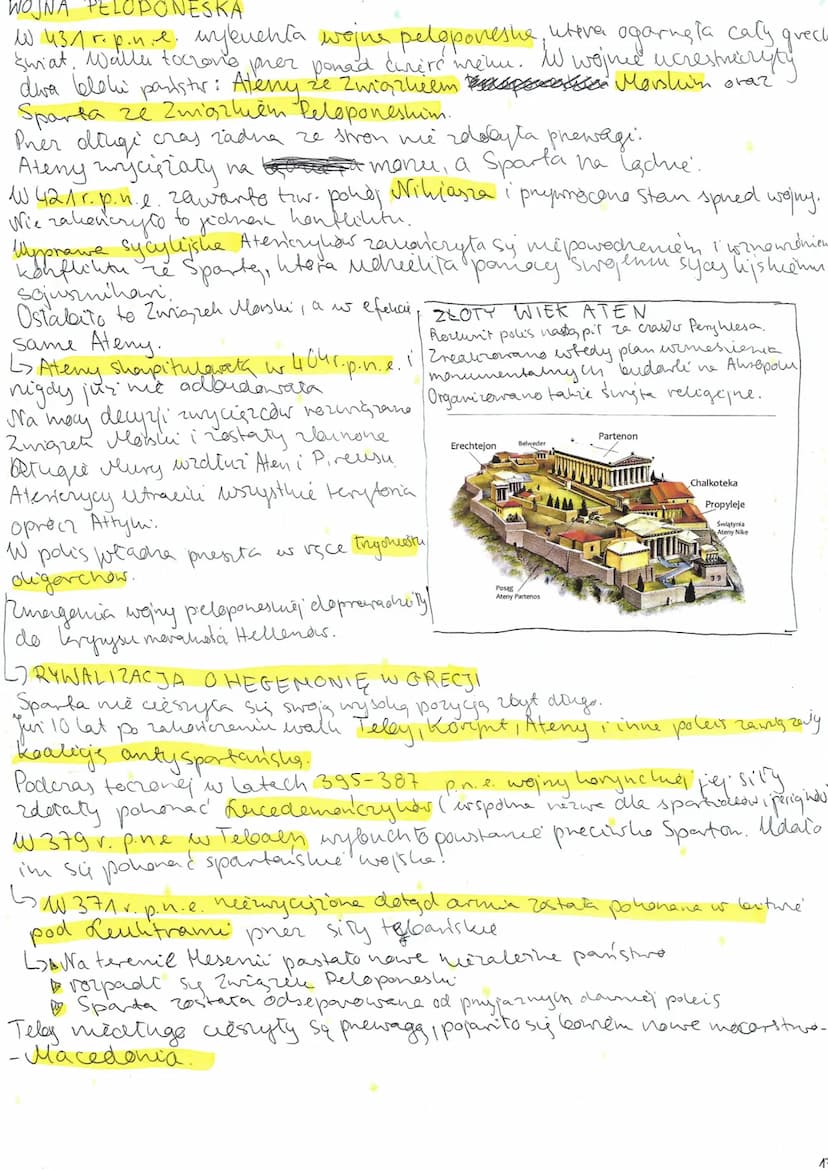 WOJNA PELOPONESKA
W 431 r. p.n.e. wybuchła wojna peloponeska, która ogarnęła cały grecki
świat. Walki toczono przez ponad ćwierć wieku. W wojnie uczestniczyły
dwa bloki państw: Ateny ze Związkiem Morskim oraz
Sparta ze Związkiem Peloponeskim.
Przez długi czas żadna ze stron nie zdobyła przewagi.
Ateny zwyciężały na morzu, a Sparta na lądzie.
W 421 r. p.n.e. zawarto tzw. pokój Nikiasza i przywrócono stan sprzed wojny.
Nie zakończyło to jednak konfliktu.
Wyprawa sycylijska Ateńczyków zakończyła się niepowodzeniem i wznowieniem
konfliktu ze Spartą, która udzieliła pomocy swojemu sycylijskiemu
sojusznikowi.
Osłabiło to Związek Morski, a w efekcie
same Ateny.
↳ Ateny skapitulowała w 404 r. p.n.e. i
nigdy już nie odbudowała
Na mocy decyzji zwycięzców rozwiązano
Związek Morski i zostały zburzone
Długie Mury wzdłuż Aten i Pireusu.
Ateńczycy utracili wszystkie terytoria
oprócz Attyki.
W polis władza przeszła w ręce trzydziestu
oligarchów.
Zmagania wojny peloponeskiej doprowadziły
do kryzysu moralności Hellenów.
ZŁOTY WIEK ATEN
Rozkwit polis nastąpił za czasów Peryklesa.
Zrealizowano wtedy plan wzniesienia
monumentalnych budowli na Akropolu
Organizowano także święta religijne.
Erechtejon
Belweder
Partenon
Chalkoteka
Propyleje
Świątynia
Ateny Nike
Posąg
Ateny Partenos
↳ RYWALIZACJA O HEGEMONIĘ W GRECJI
Sparta nie cieszyła się swoją wysoką pozycją zbyt długo.
Już 10 lat po zakończeniu walk Teby, Korynt, Ateny i inne poleis zawiązały
koalicję antyspartańską.
Podczas toczonej w latach 395-387 p.n.e. wojny korynckiej jej siły
zdołały pokonać Lacedemończyków (wspólna nazwa dla spartiatów i periojków
W 379 r. p.n.e w Tebach wybuchło powstanie przeciwko Spartan. Udało
im się pokonać spartańskie wojska.
↳ W 371 r. p.n.e. niezwyciężona dotąd armia została pokonana w bitwie
pod Leuktrami przez siły tebańskie
↳ Na terenie Mesenii powstało nowe niezależne państwo
rozpadł się Związek Peloponeski
Sparta została odseparowana od przyjaznych dawniej poleis
Teby niedługo cieszyły się przewagą, pojawiło się bowiem nowe mocarstwo-
- Macedonia.